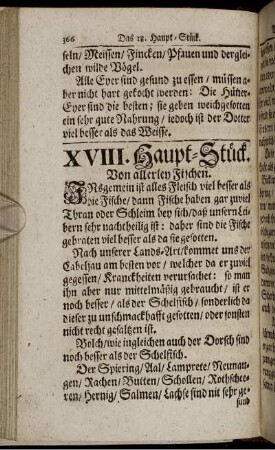 366 Das 18. Haupt-Stück.
seln/Meissen/Fincken/Pfauen und dergleichen
chen wilde Vögel.
Alle Eyer sind gesund zu essen/ müssen a-
ber nicht hart gekocht werden: Die Hüner-
Eyer sind die besten; sie geben weichgesotten
ein sehr gute Nahrung/ iedoch ist der Dotter
viel besser als das Weisse.
XVIII. Haupt-Stück.
Von allerley Fischen.
INsgemein ist alles Fleisch viel besser als
die Fische/ dann Fische haben gar zuviel
Thran oder Schleim bey sich/ daß unsern Lei-
bern sehr nachtheilig ist: daher sind die Fische
gebraten viel besser als da sie gesotten.
Nach unserer Lands-Art/ kommet uns der
Cabeljau am besten vor/ welcher da er zuviel
gegessen/ Kranckheiten verursachet: so man
ihn aber nur mittelmäßig gebraucht/ ist er
noch besser/ als der Schelfisch/ sonderlich da
dieser zu unschmackhafft gesotten/ oder sonsten
nicht recht gesaltzen ist.
Bolch/ wie ingleichen auch der Dorsch sind
noch besser als der Schelfisch.
Der Spiering/ Aal/ Lamprete/ Neunau-
gen/ Rachen/ Butten/ Schollen/ Rothsche-
ren/ Hernig/ Salmen/ Lachse sind nit sehr ge-
sund